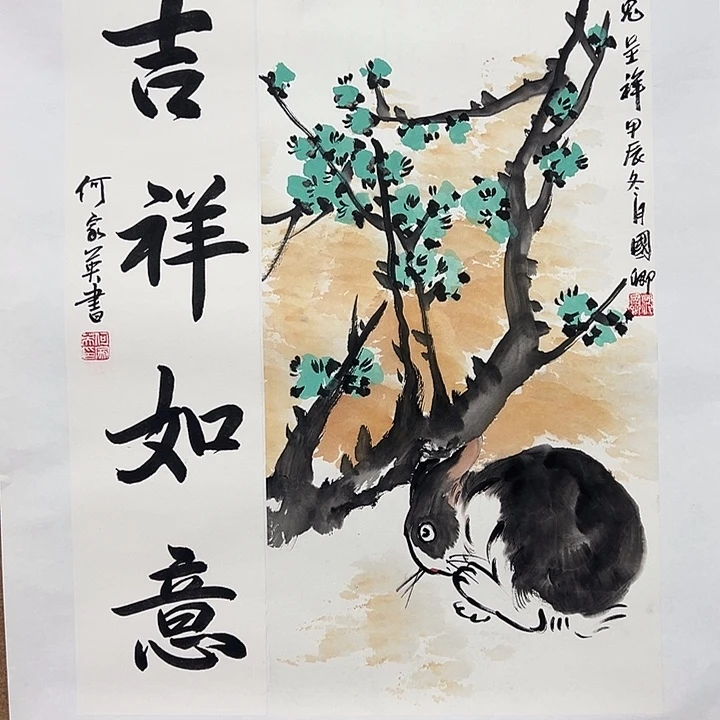 兔呈祥甲辰冬月國卿
吉祥如意
何家英書